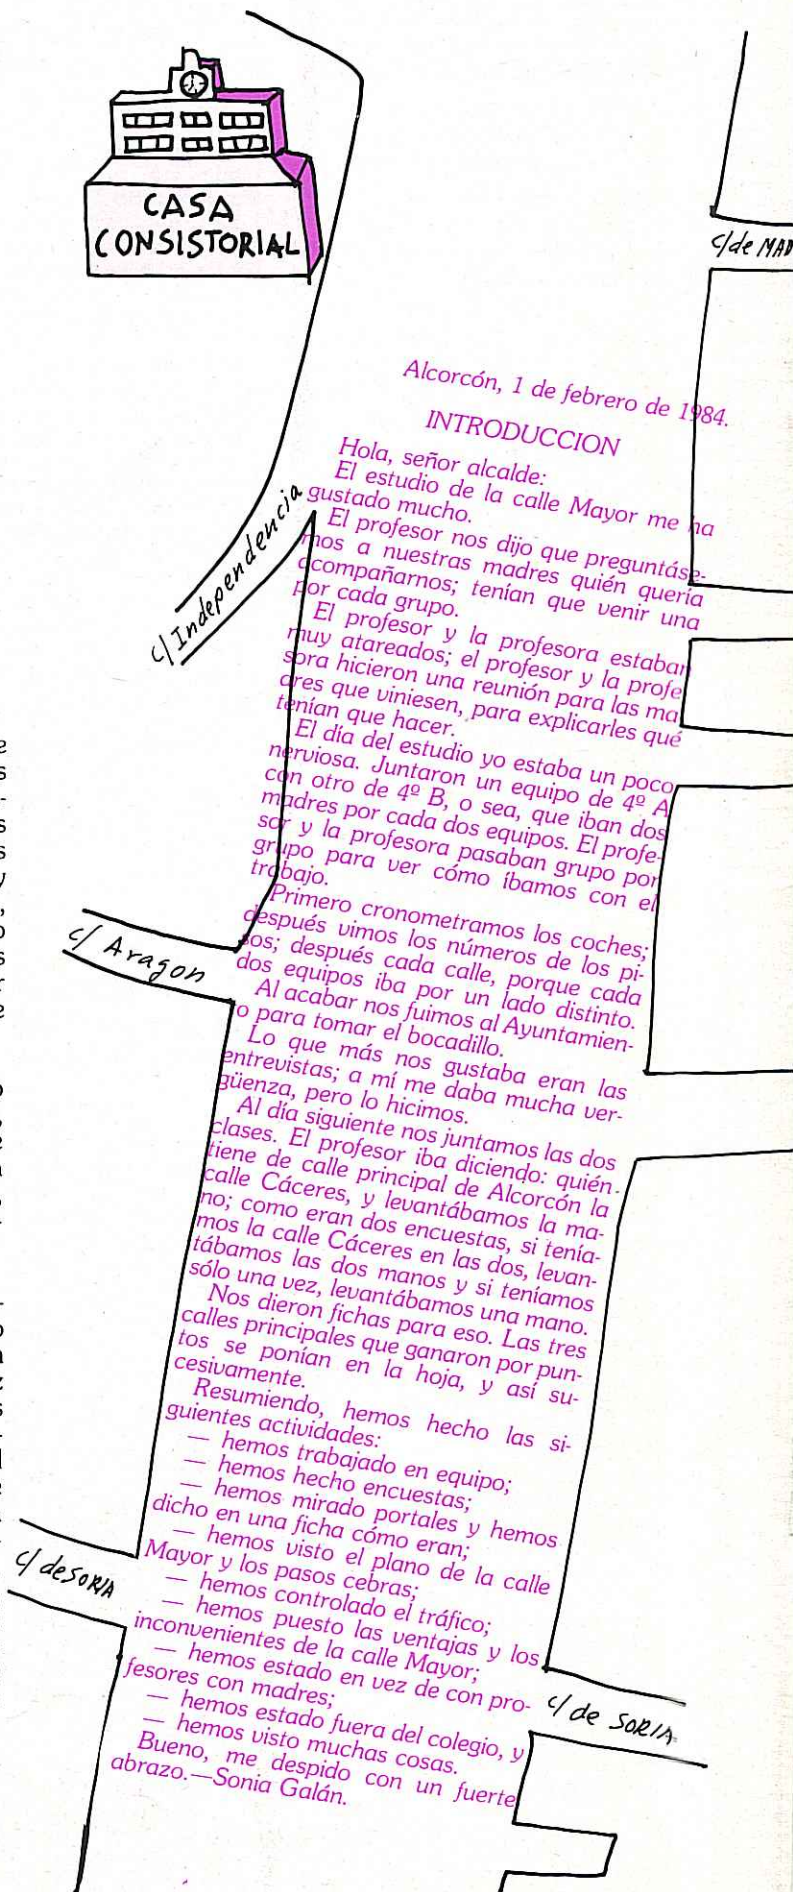 CASA
CONSISTORIAL
c/de MAD
Alcorcón, 1 de febrero de 1984.
INTRODUCCION
Hola, señor alcalde:
El estudio de la calle Mayor me ha
gustado mucho.
El profesor nos dijo que preguntáse-
mos a nuestras madres quién quería
acompañarnos; tenían que venir una
por cada grupo.
El profesor y la profesora estaban
muy atareados; el profesor y la profe
sora hicieron una reunión para las ma
dres que viniesen, para explicarles qué
tenían que hacer.
El día del estudio yo estaba un poco
nerviosa. Juntaron un equipo de 4º A
con otro de 4º B, o sea, que iban dos
madres por cada dos equipos. El profe-
sor y la profesora pasaban grupo por
grupo para ver cómo íbamos con el
trabajo.
Primero cronometramos los coches;
después vimos los números de los pi-
sos; después cada calle, porque cada
dos equipos iba por un lado distinto.
Al acabar nos fuimos al Ayuntamien-
o para tomar el bocadillo.
Lo que más nos gustaba eran las
entrevistas; a mí me daba mucha ver-
güenza, pero lo hicimos.
Al día siguiente nos juntamos las dos
clases. El profesor iba diciendo: quién-
tiene de calle principal de Alcorcón la
calle Cáceres, y levantábamos la ma-
no; como eran dos encuestas, si tenía-
mos la calle Cáceres en las dos, levan-
tábamos las dos manos y si teníamos
sólo una vez, levantábamos una mano.
Nos dieron fichas para eso. Las tres
calles principales que ganaron por pun-
tos se ponían en la hoja, y así su-
cesivamente.
Resumiendo, hemos hecho las si-
guientes actividades:
— hemos trabajado en equipo;
— hemos hecho encuestas;
— hemos mirado portales y hemos
dicho en una ficha cómo eran;
— hemos visto el plano de la calle
Mayor y los pasos cebras;
— hemos controlado el tráfico;
— hemos puesto las ventajas y los
inconvenientes de la calle Mayor;
— hemos estado en vez de con pro-
fesores con madres;
— hemos estado fuera del colegio, y
— hemos visto muchas cosas.
Bueno, me despido con un fuerte
abrazo.—Sonia Galán.
c/Independencia
c/ Aragon
c/ de SORIA
c/ de SORIA